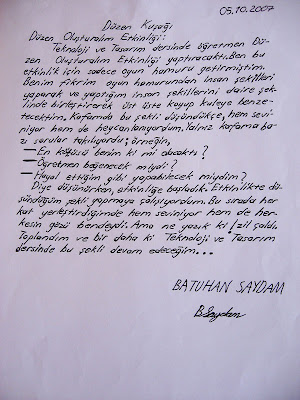 05.10.2007
Düzen Kuşağı
Düzen Oluşturalım Etkinliği:
Teknoloji ve Tasarım dersinde öğretmen Dü-
zen Oluşturalım Etkinliği yaptıracaktı. Ben bu
etkinlik için sadece oyun hamuru getirmiştim.
Benim fikrim oyun hamurundan insan şekilleri
yaparak ve yaptığım insan şekillerini daire şek-
linde birleştirerek üst üste koyup kuleye benze-
tecektim. Kafamda bu şekli düşündükçe, hem sevi-
niyor hem de heyecanlanıyordum. Yalnız kafama ba-
zı sorular takılıyordu; örneğin,
— En kötüsü benim ki mi olacaktı?
— Öğretmen beğenecek miydi?
— Hayal ettiğim gibi yapabilecek miydim?
Diye düşünürken, etkinliğe başladık. Etkinlikte dü-
şündüğüm şekli yapmaya çalışıyordum. Bu sırada her
kat yerleştirdiğimde hem seviniyor hem de her-
kesin gözü bendeydi. Ama ne yazık ki! zil çaldı.
Toplandım ve bir daha ki Teknoloji ve Tasarım
dersinde bu şekli devam edeceğim...
BATUHAN SAYDAM
B.Saydam